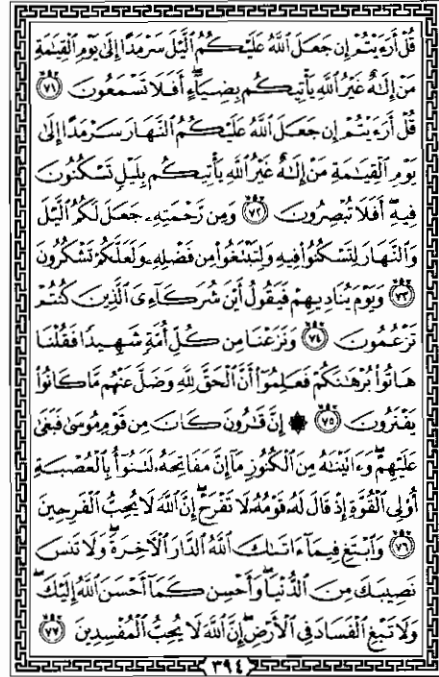 قُلْ أَرَءَيْتُمْ إِن جَعَلَ ٱللَّهُ عَلَيْكُمُ ٱلَّيْلَ سَرْمَدًا إِلَىٰ يَوْمِ ٱلْقِيَٰمَةِ
مَنْ إِلَٰهٌ غَيْرُ ٱللَّهِ يَأْتِيكُم بِضِيَآءٍ ۖ أَفَلَا تَسْمَعُونَ ٧١
قُلْ أَرَءَيْتُمْ إِن جَعَلَ ٱللَّهُ عَلَيْكُمُ ٱلنَّهَارَ سَرْمَدًا إِلَىٰ
يَوْمِ ٱلْقِيَٰمَةِ مَنْ إِلَٰهٌ غَيْرُ ٱللَّهِ يَأْتِيكُم بِلَيْلٍ تَسْكُنُونَ
فِيهِ ۖ أَفَلَا تُبْصِرُونَ ٧٢ وَمِن رَّحْمَتِهِۦ جَعَلَ لَكُمُ ٱلَّيْلَ
وَٱلنَّهَارَ لِتَسْكُنُوا۟ فِيهِ وَلِتَبْتَغُوا۟ مِن فَضْلِهِۦ وَلَعَلَّكُمْ تَشْكُرُونَ
٧٣ وَيَوْمَ يُنَادِيهِمْ فَيَقُولُ أَيْنَ شُرَكَآءِىَ ٱلَّذِينَ كُنتُمْ
تَزْعُمُونَ ٧٤ وَنَزَعْنَا مِن كُلِّ أُمَّةٍ شَهِيدًا فَقُلْنَا
هَاتُوا۟ بُرْهَٰنَكُمْ فَعَلِمُوٓا۟ أَنَّ ٱلْحَقَّ لِلَّهِ وَضَلَّ عَنْهُم مَّا كَانُوا۟
يَفْتَرُونَ ٧٥ ۞ إِنَّ قَٰرُونَ كَانَ مِن قَوْمِ مُوسَىٰ فَبَغَىٰ
عَلَيْهِمْ ۖ وَءَاتَيْنَٰهُ مِنَ ٱلْكُنُوزِ مَآ إِنَّ مَفَاتِحَهُۥ لَتَنُوٓأُ بِٱلْعُصْبَةِ
أُو۟لِى ٱلْقُوَّةِ إِذْ قَالَ لَهُۥ قَوْمُهُۥ لَا تَفْرَحْ ۖ إِنَّ ٱللَّهَ لَا يُحِبُّ ٱلْفَرِحِينَ
٧٦ وَٱبْتَغِ فِيمَآ ءَاتَىٰكَ ٱللَّهُ ٱلدَّارَ ٱلْءَاخِرَةَ ۖ وَلَا تَنسَ
نَصِيبَكَ مِنَ ٱلدُّنْيَا ۖ وَأَحْسِن كَمَآ أَحْسَنَ ٱللَّهُ إِلَيْكَ ۖ
وَلَا تَبْغِ ٱلْفَسَادَ فِى ٱلْأَرْضِ ۖ إِنَّ ٱللَّهَ لَا يُحِبُّ ٱلْمُفْسِدِينَ ٧٧
٣٩٤